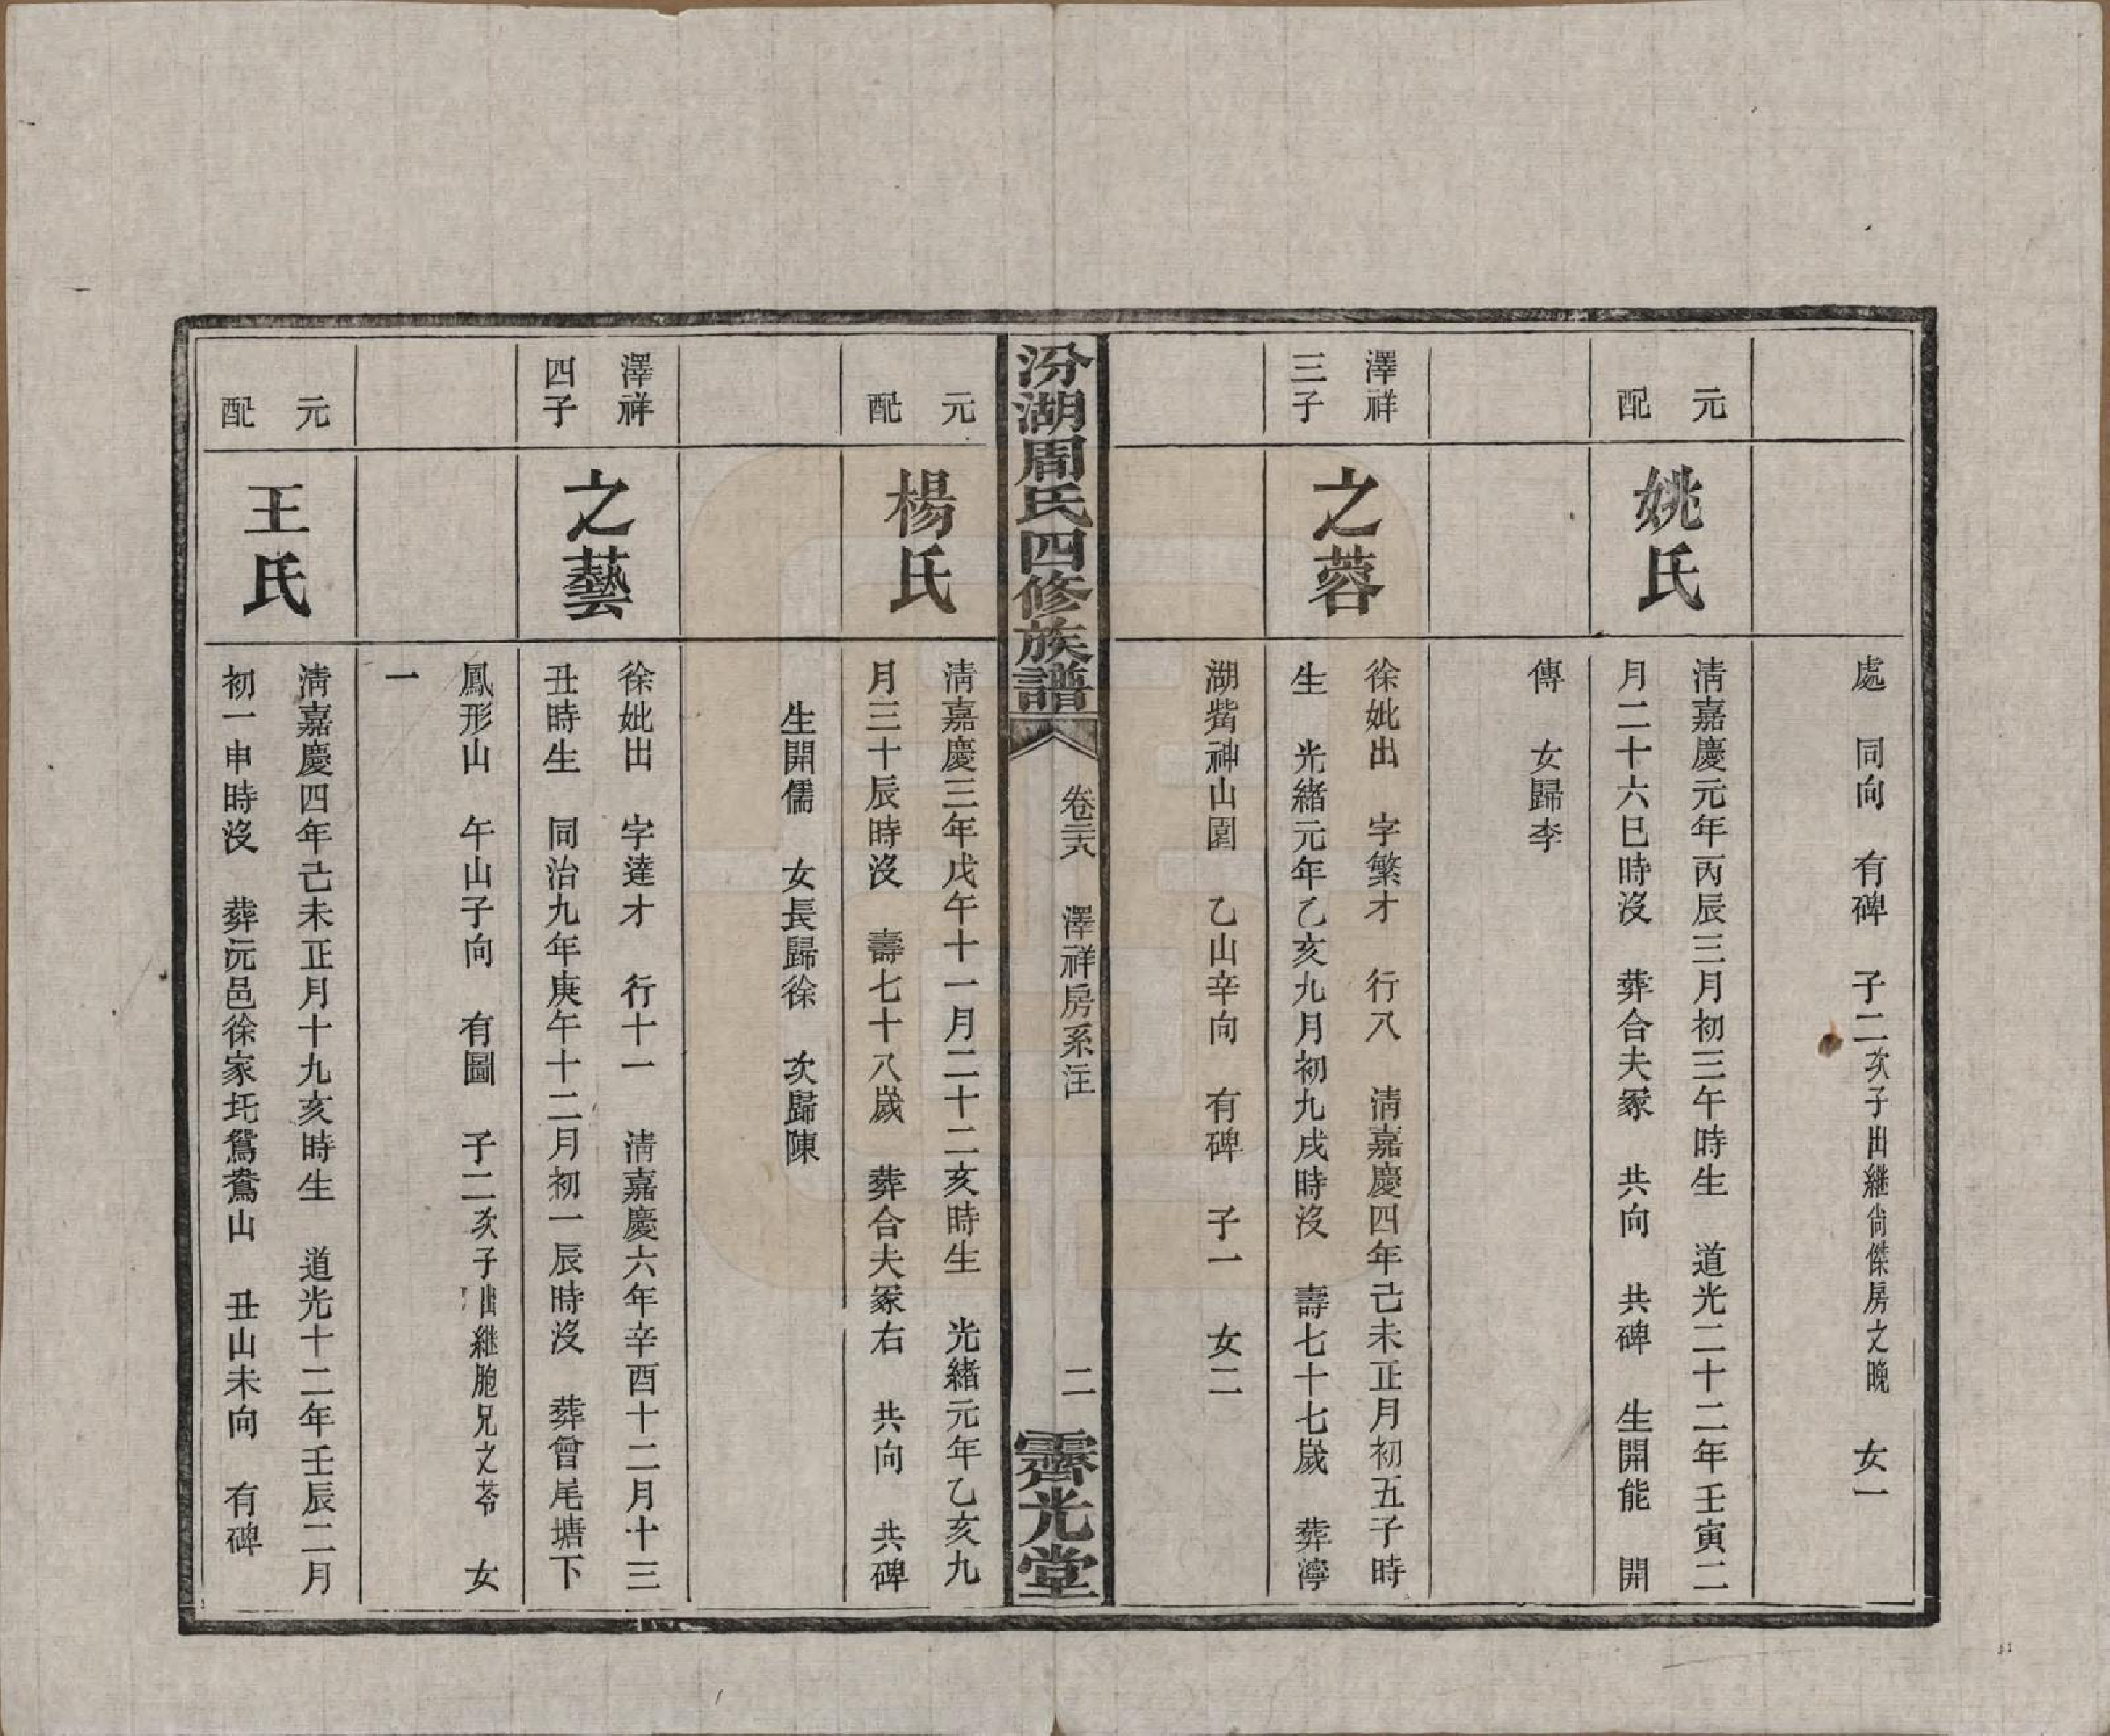 處 同向 有碑 子二次子出繼尙傑房之晚 女一
元
配
姚氏
淸嘉慶元年丙辰三月初三午時生 道光二十二年壬寅二
月二十六巳時沒 葬合夫冢 共向 共碑 生開能 開
傳 女歸李
澤祥
三子
之蓉
徐妣出 字繁才 行八 淸嘉慶四年己未正月初五子時
生 光緒元年乙亥九月初九戌時沒 壽七十七歲 葬濘
湖觜神山園 乙山辛向 有碑 子一 女二
汾湖周氏四修族譜
卷三六 澤祥房系注
二
霽光堂
元
配
楊氏
淸嘉慶三年戊午十一月二十二亥時生 光緒元年乙亥九
月三十辰時沒 壽七十八歲 葬合夫冢右 共向 共碑
生開儒 女長歸徐 次歸陳
澤祥
四子
之藝
徐妣出 字達才 行十一 淸嘉慶六年辛酉十二月十三
丑時生 同治九年庚午十二月初一辰時沒 葬曾尾塘下
鳳形山 午山子向 有圖 子二次子出繼胞兄之苓 女
一
元
配
王氏
淸嘉慶四年己未正月十九亥時生 道光十二年壬辰二月
初一申時沒 葬沅邑徐家圫鴛鴦山 丑山未向 有碑